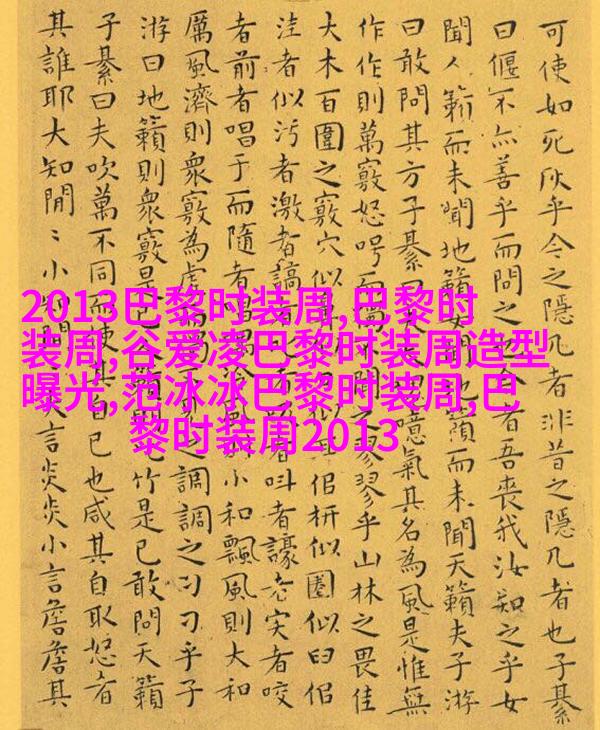 可使如死灰乎今之隱几者非昔之隱几者也子綦
曰偃不亦善乎而問之今者吾喪我汝知之乎女
聞人籟而未聞地籟女聞地籟而未聞天籟夫子游
曰敢問其方子綦曰夫噫氣其名為風是惟無
作作則萬竅怒呺而之翏翏乎山林之畏佳
大木百圍之竅穴似鼻似耳似枅似圈似臼似
洼者似污者激者謞者叫者譹者宎者咬
者前者唱于而隨者唱喁泠風則小和飄風則大和
厲風濟則衆竅為虛而之調調之刁刁乎子
游曰地籟則衆竅是已比竹是已敢問天籟
子綦曰夫吹萬不同而使其自已也咸其自取怒者
其誰耶大知閒〻小知閒大言炎炎小言詹詹其
2013巴黎时装周,巴黎时
装周,谷爱凌巴黎时装周造型
曝光,范冰冰巴黎时装周,巴
黎时装周2013